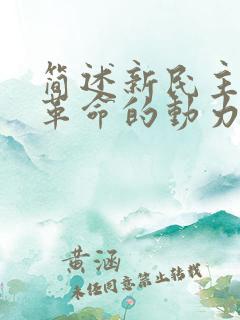 简述新民主
革命的動力
黄涵
未经同意禁止转载